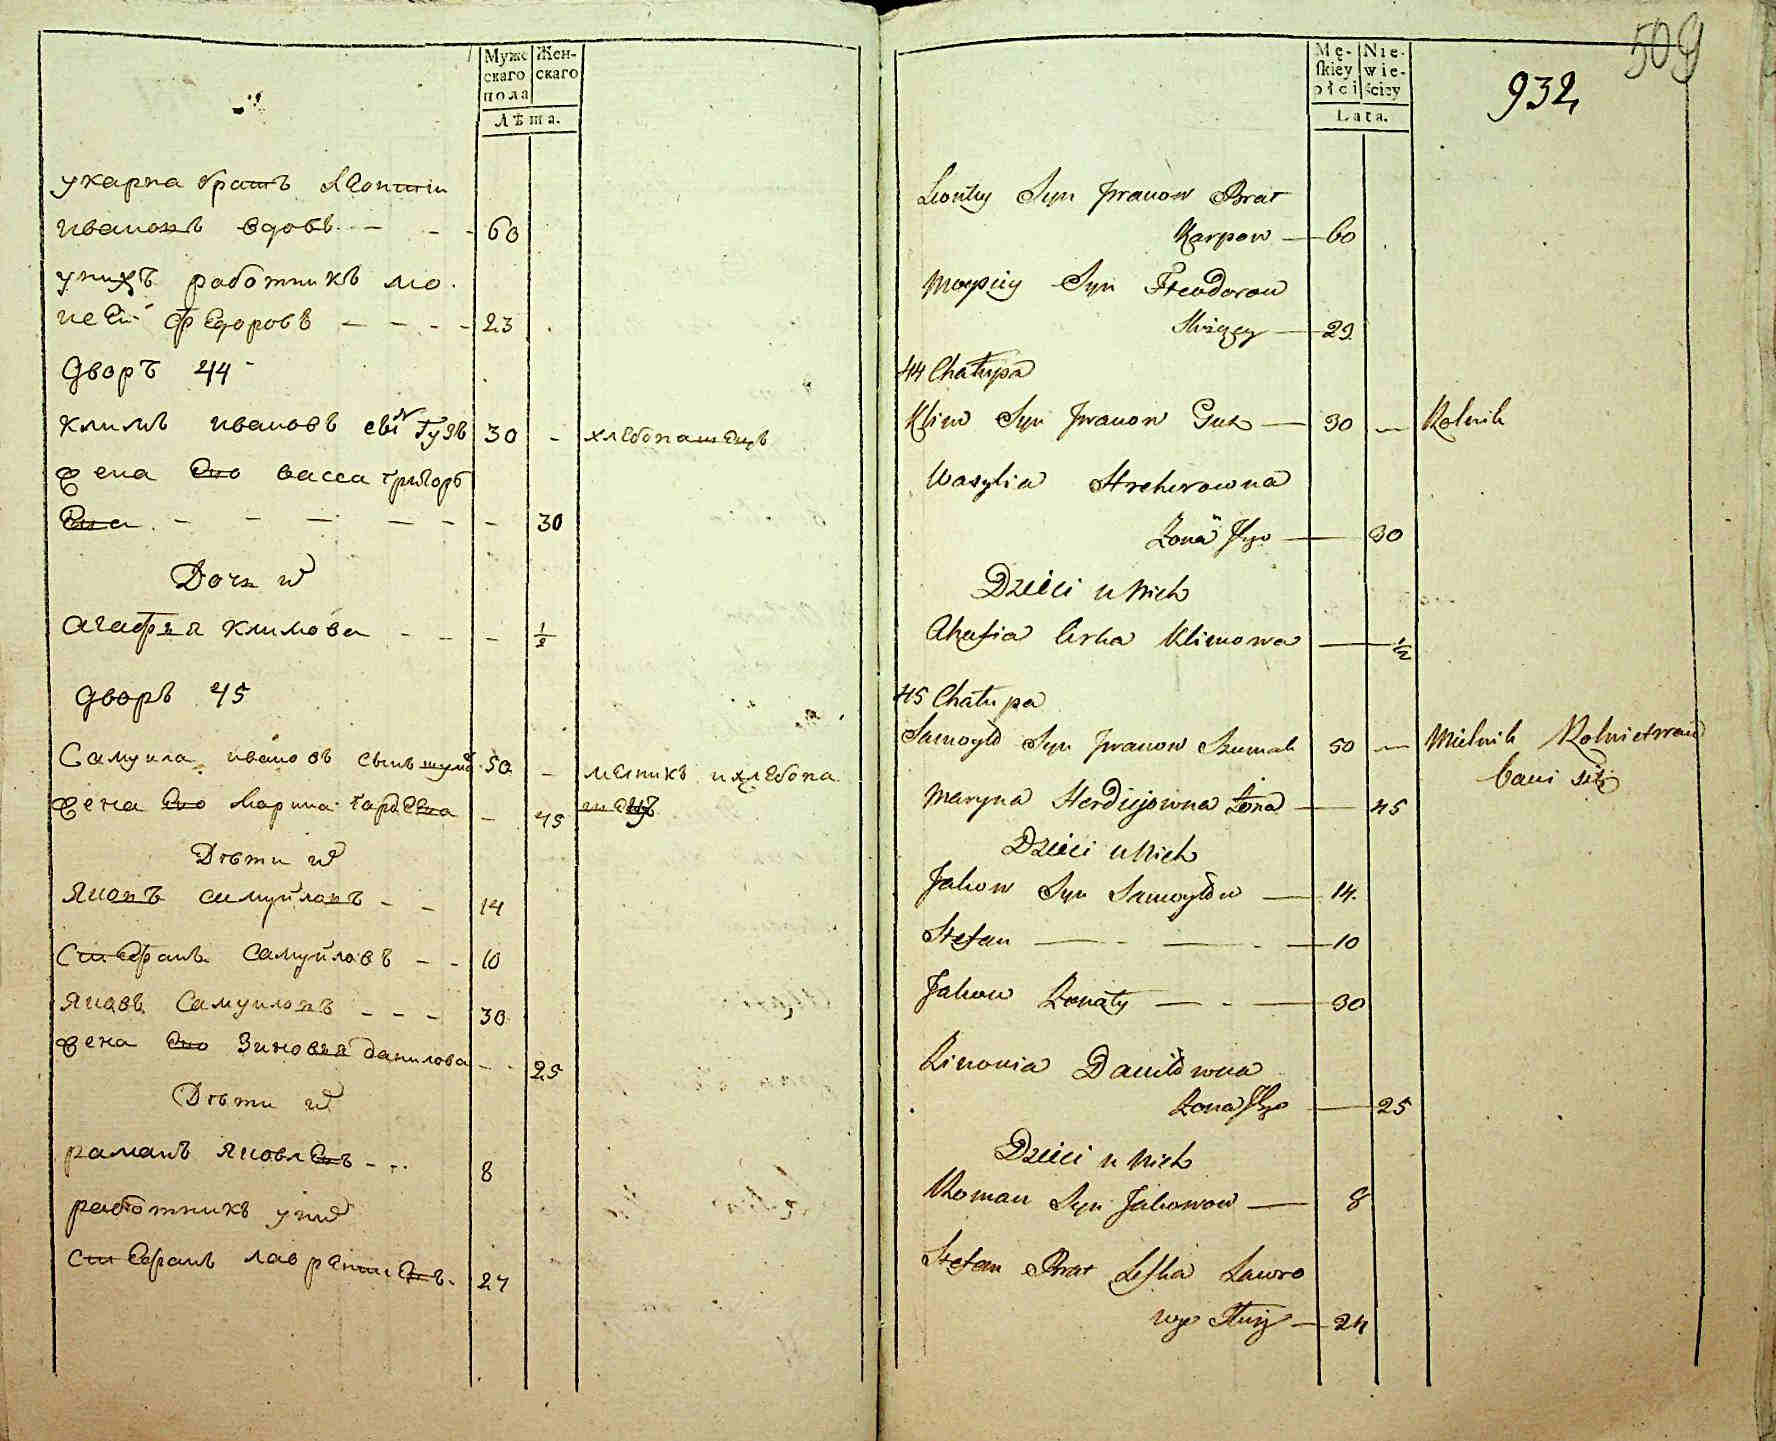 Муже
скаго
пола
Жен-
скаго
Лѣта.
укарпа братъ Леонтiи
ивановъ вдовъ - - - 60
унихъ работникъ мо
исей федоровъ - - - - 23
дворъ 44
климъ ивановъ сынъ гузъ 30 - хлебопашецъ
жена его васса григорь
ева - - - - - - 30
Дочь их
агафья климова - - - 1/2
дворъ 45
Самуила ивановъ сынъ 50 - мелникъ и хлебопа
жена его марина гордеева - 45 шецъ
Дѣти их
Яковъ самуиловъ - - 14
Стефанъ самуиловъ - - 10
Яковъ Самуиловъ - - - 30
жена его Зиновья данилова - - 25
Дѣти их
раманъ яковлевъ - - 8
работникъ уних
Стефанъ лаврентиевъ. 24
509
932
Mę-
skiey
płci
Nie-
wie-
ściey
Lata.
Leontiy Syn Jwanow Brat
Karpow — 60
Moysiey Syn Fteodorow
Służący — 23
44 Chałupa
Klim Syn Jwanow Guz — 30 — Rolnik
Wasylia Hrehorowna
Żona Jego — 30
Dzieci u Nich
Ahafia Crka Klimowa — 1/2
45 Chałupa
Samoyło Syn Jwanow Szumak 50 — Mielnik Rolnictwem
bawi się
Maryna Herdiejowna Żona — 45
Dzieci u Nich
Jakow Syn Samoyłow — 14.
Stefan — - — - — 10
Jakow Żonaty — - — 30
Zinowia Daniłowna
Żona Jego — 25
Dzieci u Nich
Roman Syn Jakowow — 8
Stefan Brat Leśka Ławro
wy Służ — 24